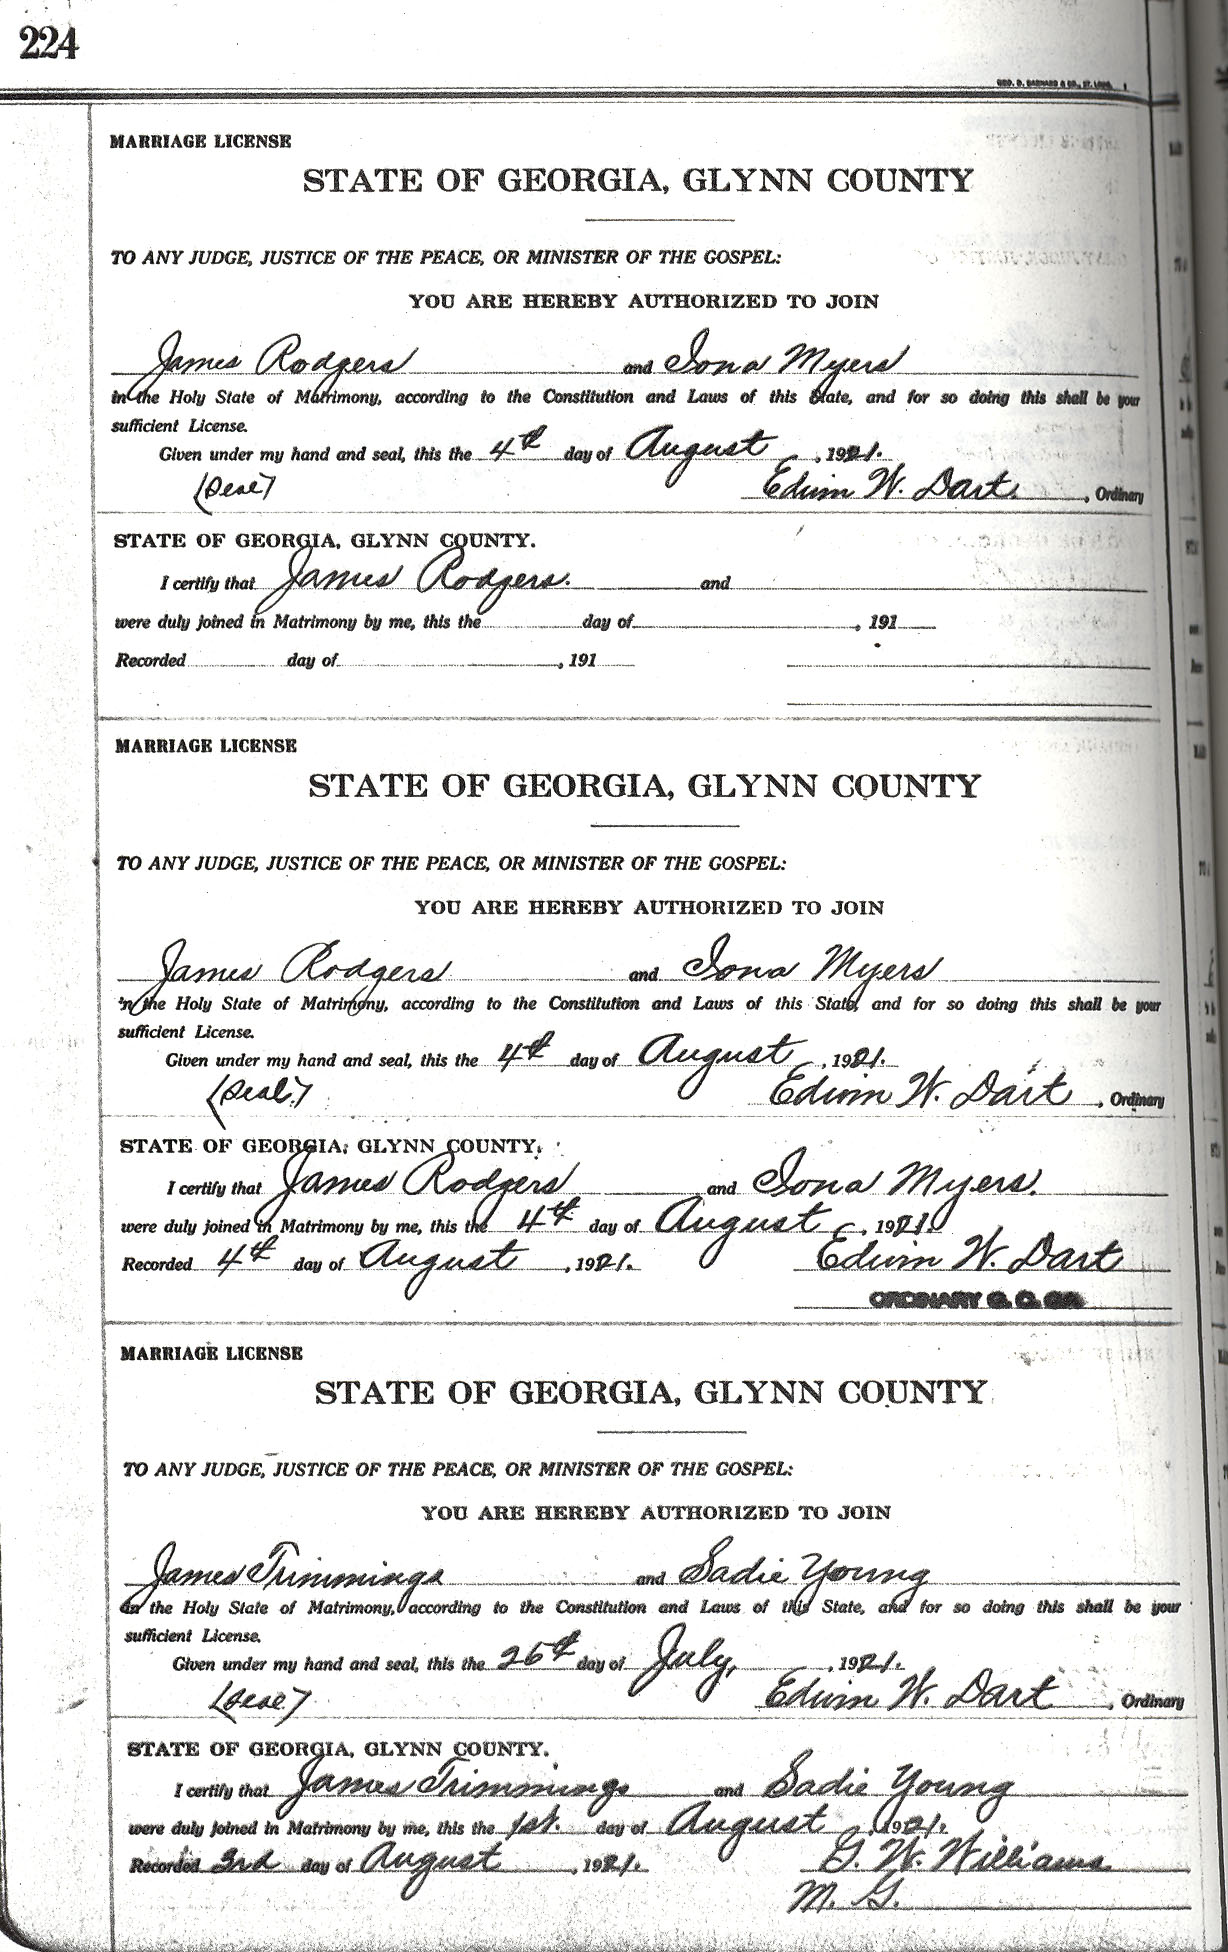 224
GEO. D. BARNARD & CO., ST. LOUIS.
MARRIAGE LICENSE
STATE OF GEORGIA, GLYNN COUNTY
TO ANY JUDGE, JUSTICE OF THE PEACE, OR MINISTER OF THE GOSPEL:
YOU ARE HEREBY AUTHORIZED TO JOIN
James Rodgers and Iona Myers
in the Holy State of Matrimony, according to the Constitution and Laws of this State, and for so doing this shall be your
sufficient License.
Given under my hand and seal, this the 4th day of August, 1921.
(Seal) Edwin W. Dart, Ordinary
STATE OF GEORGIA, GLYNN COUNTY.
I certify that James Rodgers. and
were duly joined in Matrimony by me, this the day of , 191
Recorded day of , 191
MARRIAGE LICENSE
STATE OF GEORGIA, GLYNN COUNTY
TO ANY JUDGE, JUSTICE OF THE PEACE, OR MINISTER OF THE GOSPEL:
YOU ARE HEREBY AUTHORIZED TO JOIN
James Rodgers and Iona Myers
in the Holy State of Matrimony, according to the Constitution and Laws of this State, and for so doing this shall be your
sufficient License.
Given under my hand and seal, this the 4th day of August, 1921.
(Seal.) Edwin W. Dart, Ordinary
STATE OF GEORGIA, GLYNN COUNTY.
I certify that James Rodgers and Iona Myers.
were duly joined in Matrimony by me, this the 4th day of August, 1921.
Recorded 4th day of August, 1921. Edwin W. Dart
ORDINARY G. C. GA.
MARRIAGE LICENSE
STATE OF GEORGIA, GLYNN COUNTY
TO ANY JUDGE, JUSTICE OF THE PEACE, OR MINISTER OF THE GOSPEL:
YOU ARE HEREBY AUTHORIZED TO JOIN
James Trimmings and Sadie Young
in the Holy State of Matrimony, according to the Constitution and Laws of this State, and for so doing this shall be your
sufficient License.
Given under my hand and seal, this the 26th day of July, 1921.
(Seal) Edwin W. Dart, Ordinary
STATE OF GEORGIA, GLYNN COUNTY.
I certify that James Trimmings and Sadie Young
were duly joined in Matrimony by me, this the 1st. day of August, 1921.
Recorded 3rd day of August, 1921. G. W. Williams
M. G.